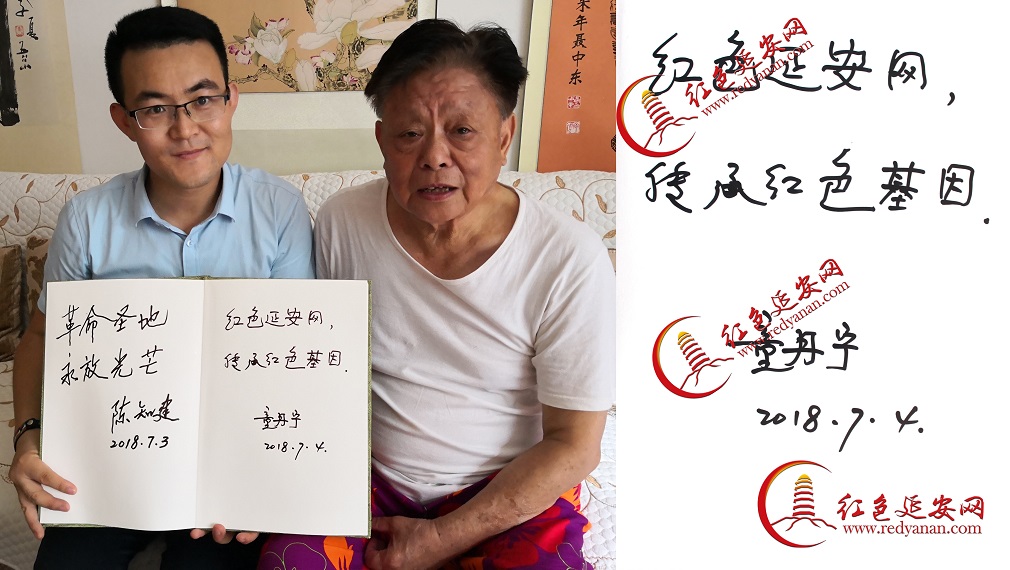 朱年聂中东
革命圣地
永放光芒
陈知建
2018.7.3
红色延安网，
传承红色基因.
童丹宁
2018.7.4.
红色延安网，
传承红色基因.
童丹宁
2018.7.4.
红色延安网
www.redyanan.com
红色延安网
www.redyanan.com
红色延安网
www.redyanan.com